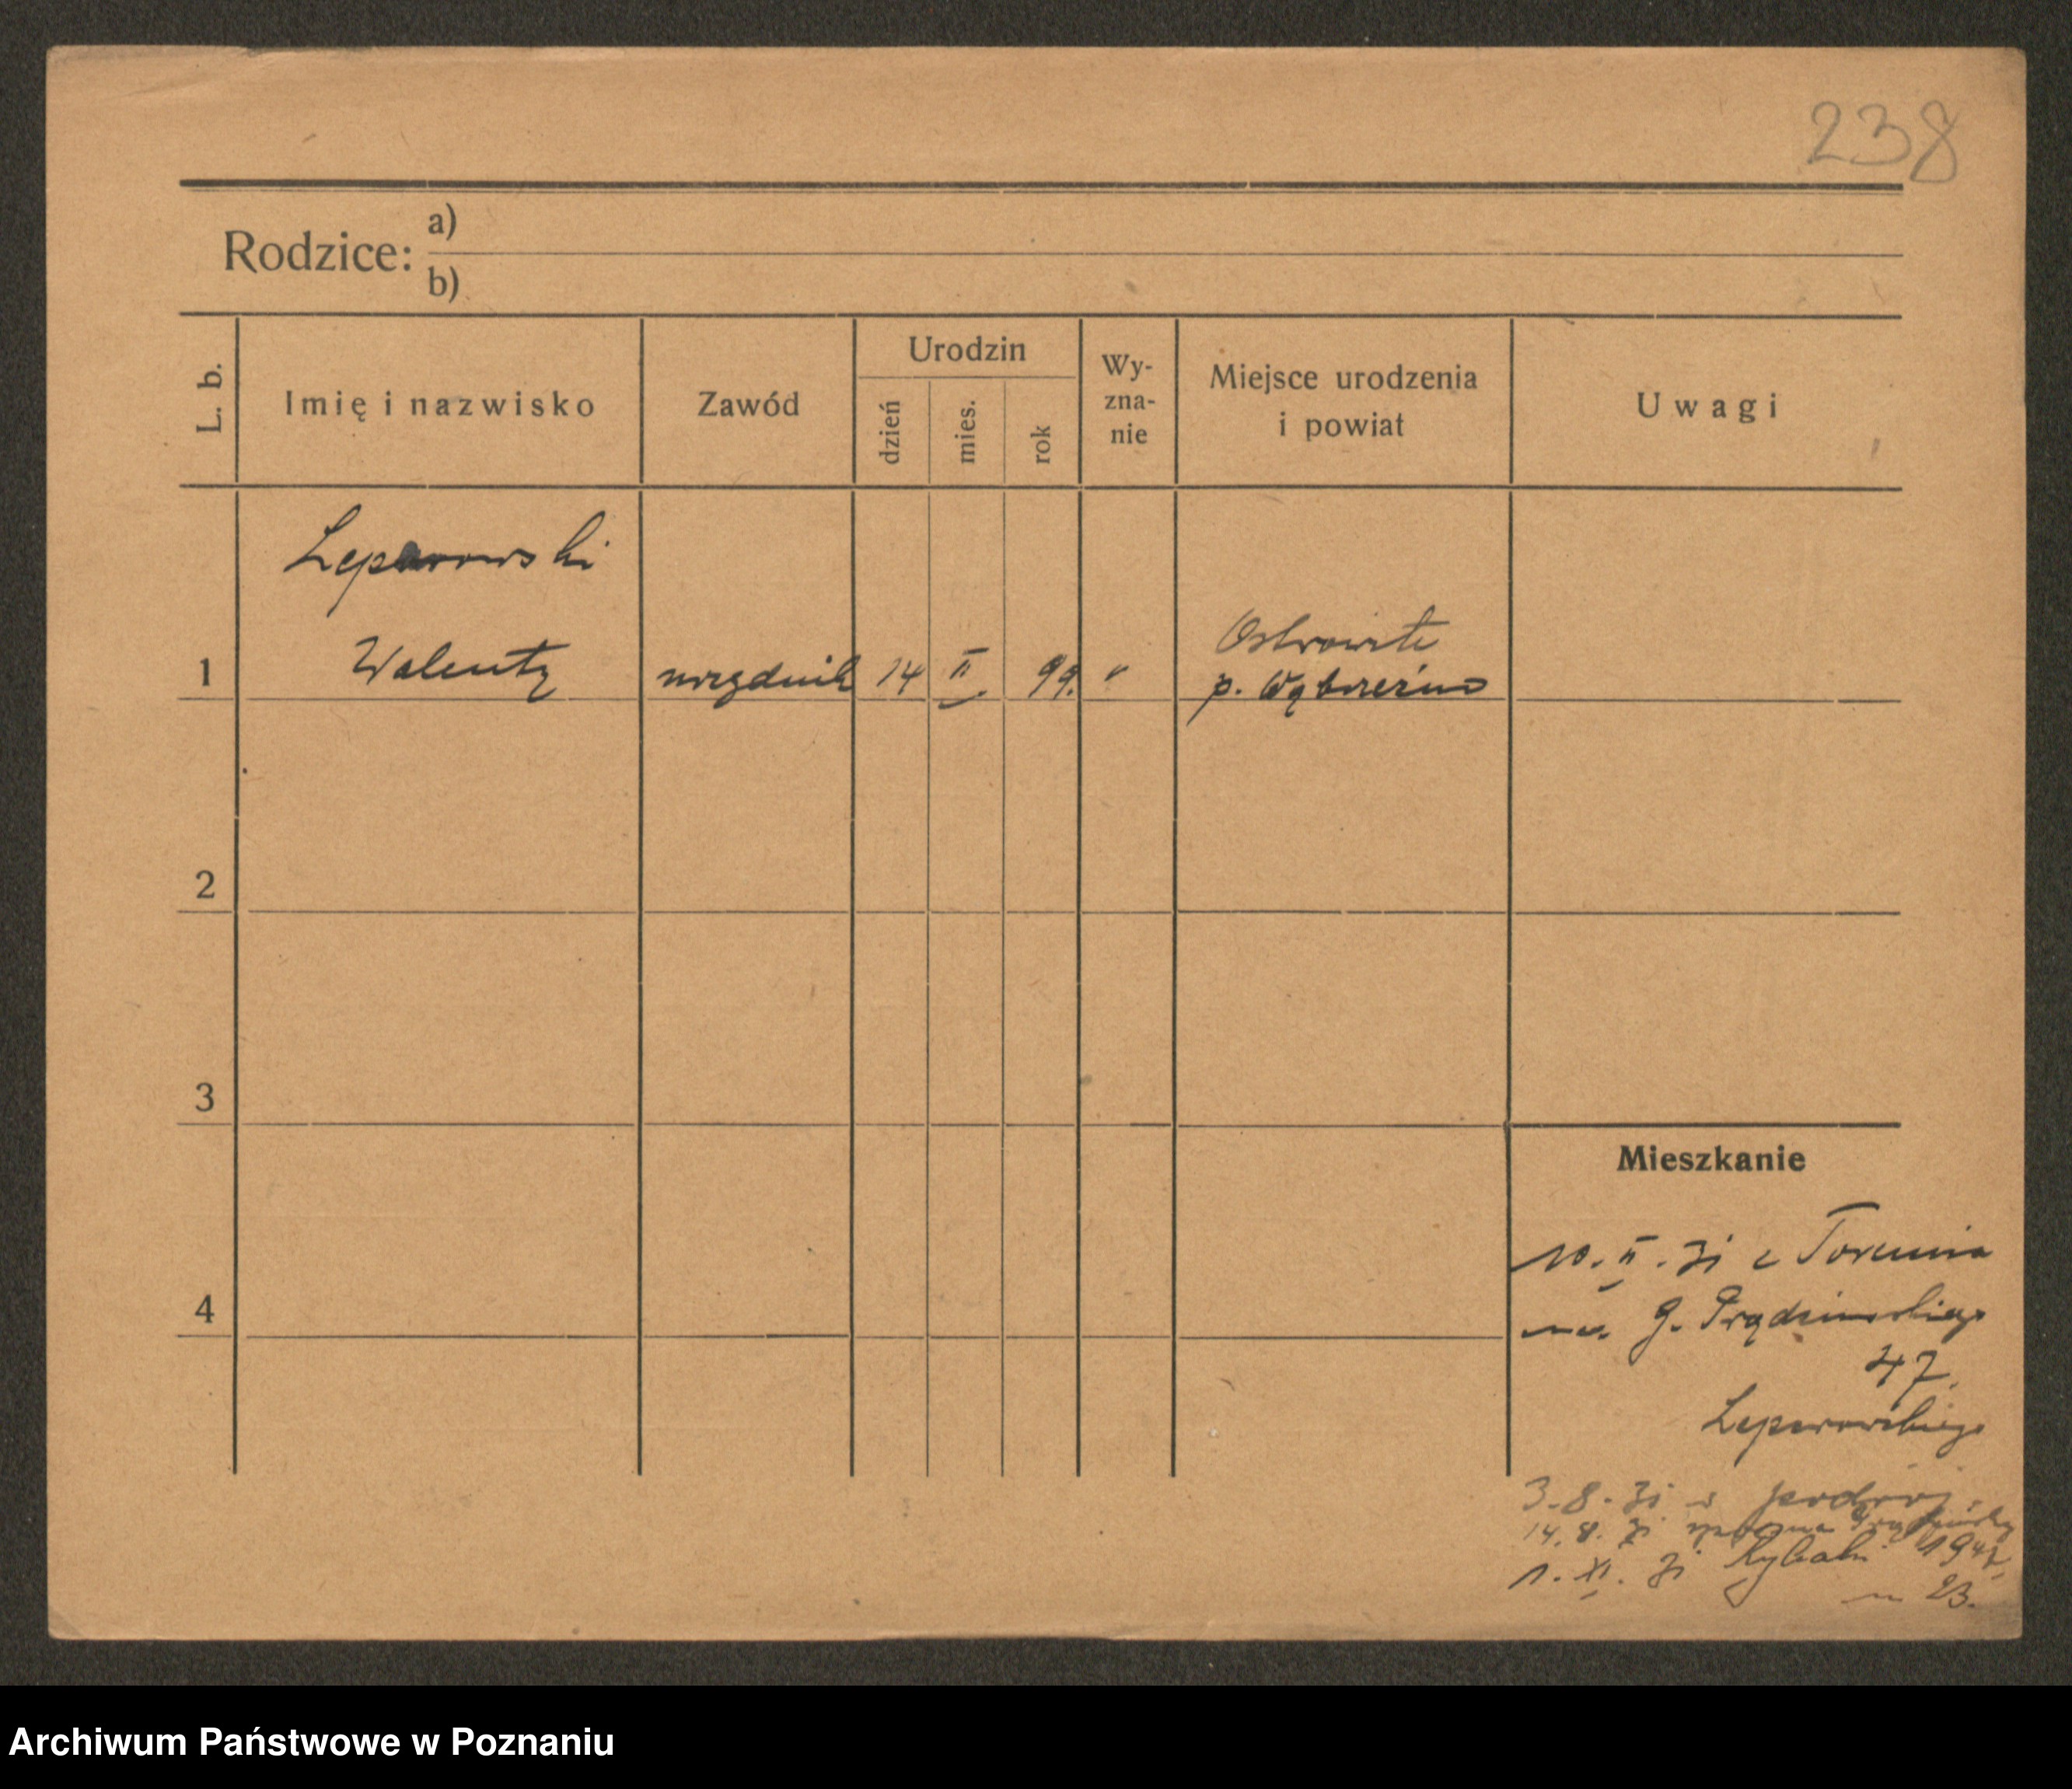 238
Rodzice: a)
b)
L. b. Imię i nazwisko Zawód Urodzin dzień mies. rok Wy-zna-nie Miejsce urodzenia i powiat Uwagi
Leparowski
1 Walenty urzędnik 14 II. 99. " Ostrowite
p. Wąbrzeźno
2
3
Mieszkanie
4
10. II. 31 z Torunia
na G. Prądzińskiego
47.
Leparowskiego
3. 8. 31 w podróż.
14. 8. 31
1. XI. 31 Rybaki 19
m 23.
Archiwum Państwowe w Poznaniu